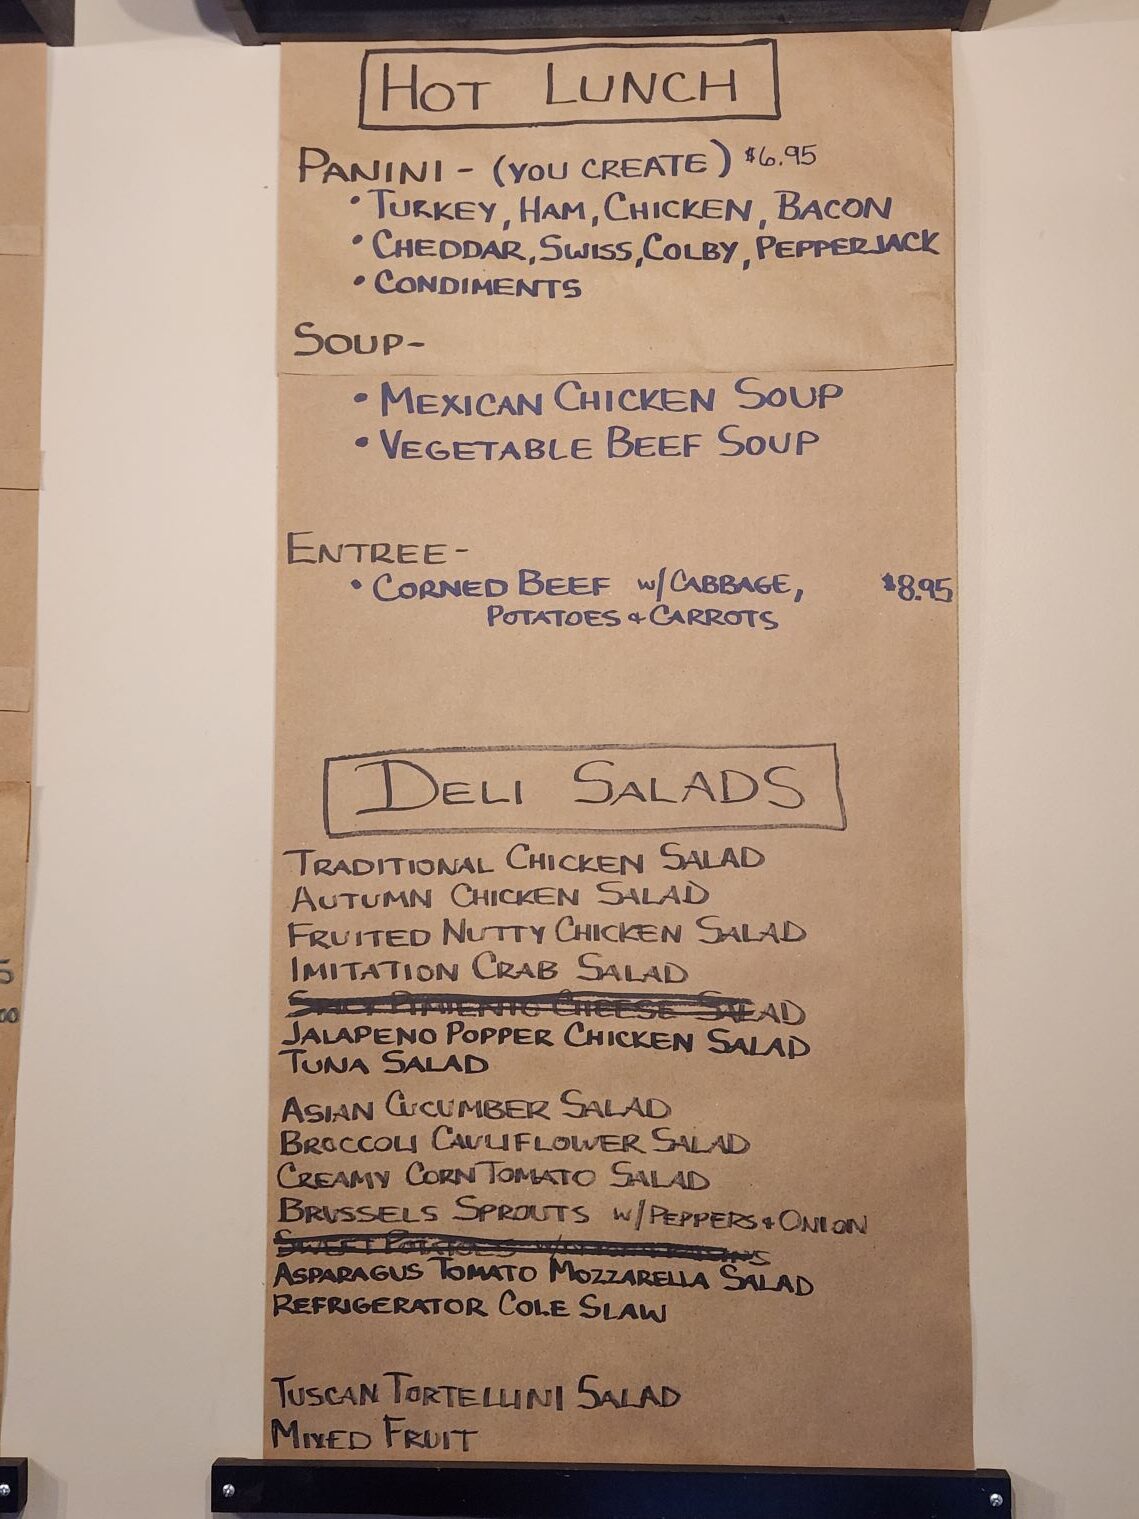 HOT LUNCH
PANINI - (YOU CREATE) $6.95
• TURKEY, HAM, CHICKEN, BACON
• CHEDDAR, SWISS, COLBY, PEPPERJACK
• CONDIMENTS
SOUP-
• MEXICAN CHICKEN SOUP
• VEGETABLE BEEF SOUP
ENTREE -
• CORNED BEEF w/CABBAGE, $8.95
POTATOES + CARROTS
DELI SALADS
TRADITIONAL CHICKEN SALAD
AUTUMN CHICKEN SALAD
FRUITED NUTTY CHICKEN SALAD
IMITATION CRAB SALAD
PIMIENTO CHEESE SALAD
JALAPENO POPPER CHICKEN SALAD
TUNA SALAD
ASIAN CUCUMBER SALAD
BROCCOLI CAULIFLOWER SALAD
CREAMY CORN TOMATO SALAD
BRUSSELS SPROUTS w/PEPPERS + ONION
SWEET POTATOES
ASPARAGUS TOMATO MOZZARELLA SALAD
REFRIGERATOR COLE SLAW
TUSCAN TORTELLINI SALAD
MIXED FRUIT
5
00